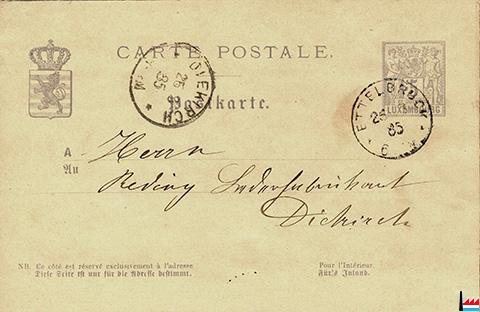 CARTE POSTALE.
Postkarte.
LUXEMBOURG
DIEKIRCH
26
85
ETTELBRUCK
26
85
6
A
An
Herrn
Reding Lederfabrikant
Diekirch
NB. Ce côté est réservé exclusivement à l'adresse
Diese Seite ist nur für die Adresse bestimmt.
Pour l'Intérieur.
Für's Inland.